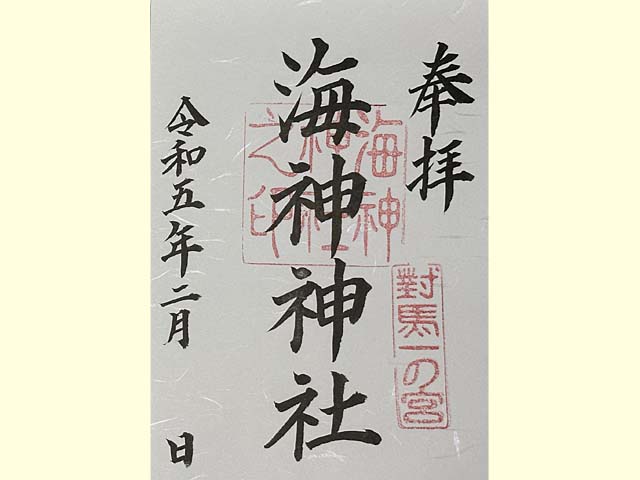 奉拝
對馬一の宮
海神神社
海神
神社
之印
令和五年二月 日